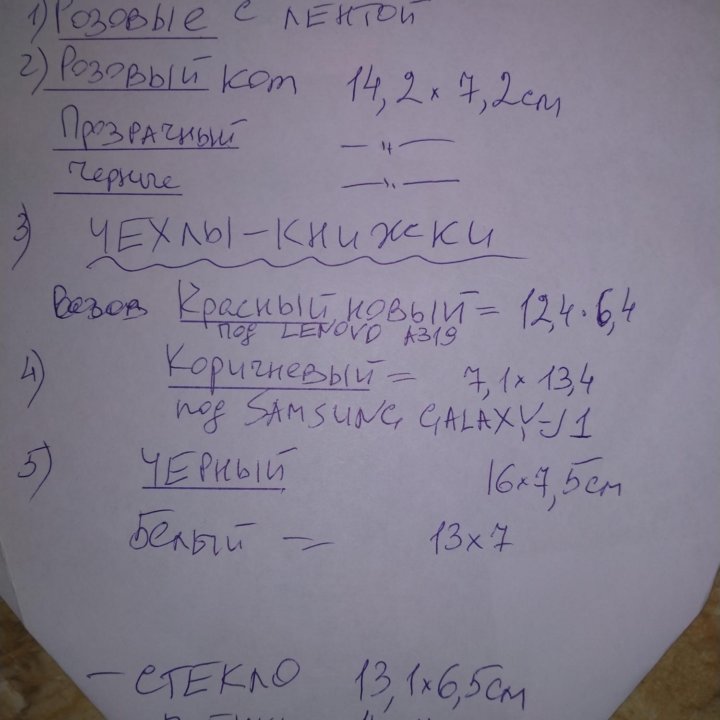 1) Розовые с лентой
2) Розовый кот 14,2 × 7,2 см
Прозрачный —"—
Черные —"—
3) ЧЕХЛЫ-КНИЖКИ
Красный новый = 12,4 · 6,4
под LENOVO A319
4) Коричневый = 7,1 × 13,4
под SAMSUNG GALAXY J1
5) ЧЕРНЫЙ 16 × 7,5 см
Белый = 13 × 7
— СТЕКЛО 13,1 × 6,5 см